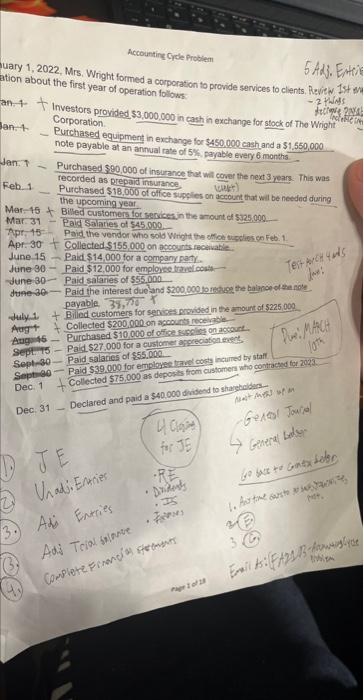 Accounting Cycle Problem
5 Adj. Entries
uary 1, 2022, Mrs. Wright formed a corporation to provide services to clients. Review 1st
ation about the first year of operation follows:
- 2 things
an. 1 + Investors provided $3,000,000 in cash in exchange for stock of The Wright
Corporation.
Jan. 1 - Purchased equipment in exchange for $450,000 cash and a $1,550,000
note payable at an annual rate of 5%, payable every 6 months.
Jan. 1 - Purchased $90,000 of insurance that will cover the next 3 years. This was
recorded as prepaid insurance.
Feb. 1 Purchased $18,000 of office supplies on account that will be needed during
the upcoming year.
Mar. 15 + Billed customers for services in the amount of $325,000.
Mar. 31 - Paid Salaries of $45,000.
Apr. 15 - Paid the vendor who sold Wright the office supplies on Feb. 1.
Apr. 30 + Collected $155,000 on accounts receivable.
June 15 - Paid $14,000 for a company party.
June 30 - Paid $12,000 for employee travel costs.
June 30 - Paid salaries of $55,000.
June 30 - Paid the interest due and $200,000 to reduce the balance of the note
payable.
July 1 + Billed customers for services provided in the amount of $225,000.
Aug 1 + Collected $200,000 on accounts receivable.
Aug. 15 - Purchased $10,000 of office supplies on account.
Sept. 15 - Paid $27,000 for a customer appreciation event.
Sept. 30 - Paid salaries of $55,000.
Sept 30 Paid $39,000 for employee travel costs incurred by staff.
Dec. 1 + Collected $75,000 as deposits from customers who contracted for 2023.
Dec. 31 - Declared and paid a $40,000 dividend to shareholders.
Due. MARCH
10th
4 Closing
for JE
· RE
· Dividends
· IS
- General Journal
General Ledger
Go back to
1. JE
2. Unadj. Entries
3. Adj Entries
3. Adj Trial balance
4. Complete Financial statements
2 E
3 G
Page 1 of 28
Email As: